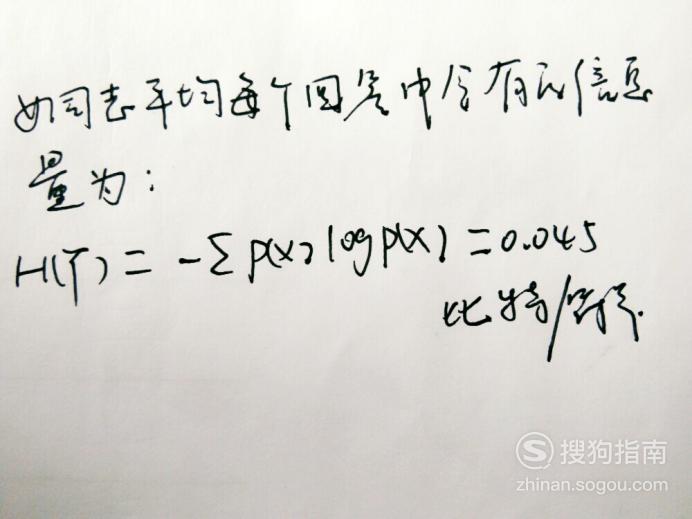 女同志平均每个回答中含有的信息
量为:
H(Y) = -Σ p(x) log p(x) = 0.045
比特/符号.
搜狗指南
zhinan.sogou.com